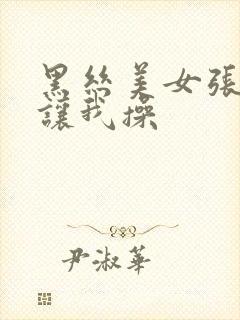 黑丝美女張
讓我操
尹淑華